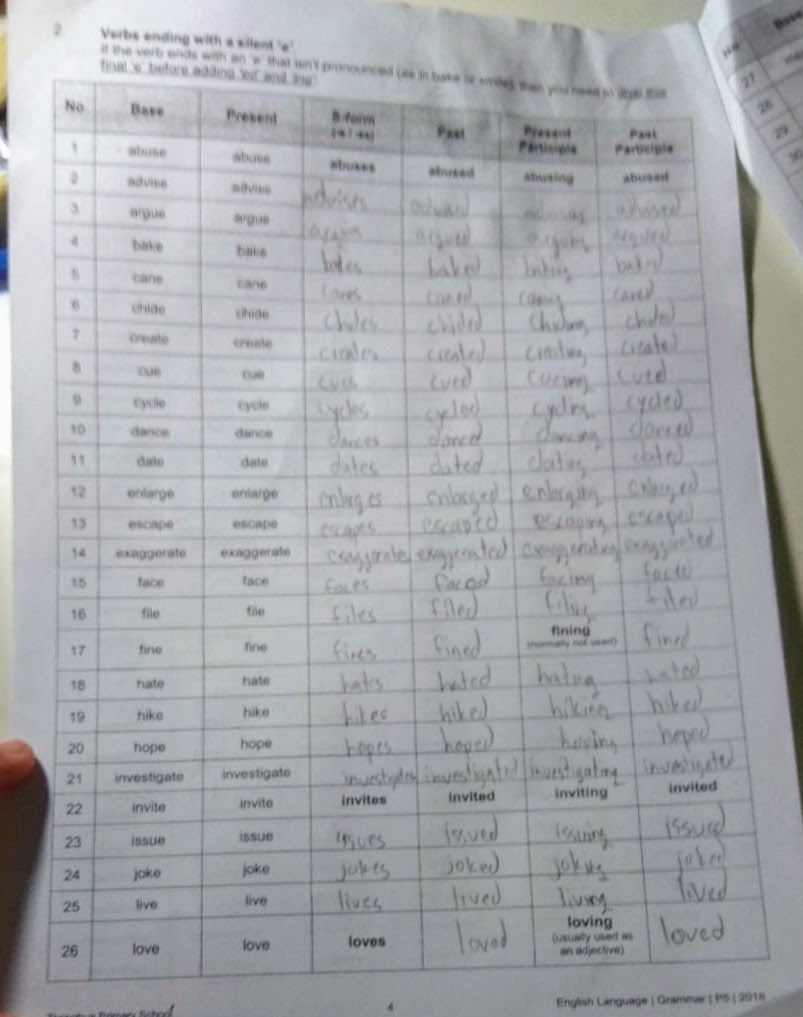 2. Verbs ending with a silent 'e'
If the verb ends with an 'e' that isn't pronounced (as in bake or smile), then you need to drop this
final 'e' before adding 'ed' and 'ing'
No Base Present S-form Past Present Participle Past Participle
1 abuse abuse abuses abused abusing abused
2 advise advise advises advised advising advised
3 argue argue argued arguing argued
4 bake bake baked baking baked
5 cane cane canes caned caning caned
6 chide chide chides chided chiding chided
7 create create creates created creating created
8 cue cue cues cued cueing cued
9 cycle cycle cycles cycled cycling cycled
10 dance dance dances danced dancing danced
11 date date dates dated dating dated
12 enlarge enlarge enlarges enlarged enlarging enlarged
13 escape escape escapes escaped escaping escaped
14 exaggerate exaggerate exaggerate exaggerated exaggerating exaggerated
15 face face faces faced facing faced
16 file file files filed filing filed
17 fine fine fines fined fining (normally not used) fined
18 hate hate hates hated hating hated
19 hike hike hikes hiked hiking hiked
20 hope hope hopes hoped hoping hoped
21 investigate investigate investigates investigated investigating investigated
22 invite invite invites invited inviting invited
23 issue issue issues issued issuing issued
24 joke joke jokes joked joking joked
25 live live lives lived living lived
26 love love loves loved loving (usually used as an adjective) loved
Primary School 4 English Language | Grammar | P5 | 2018
No Base
27
28
29
30